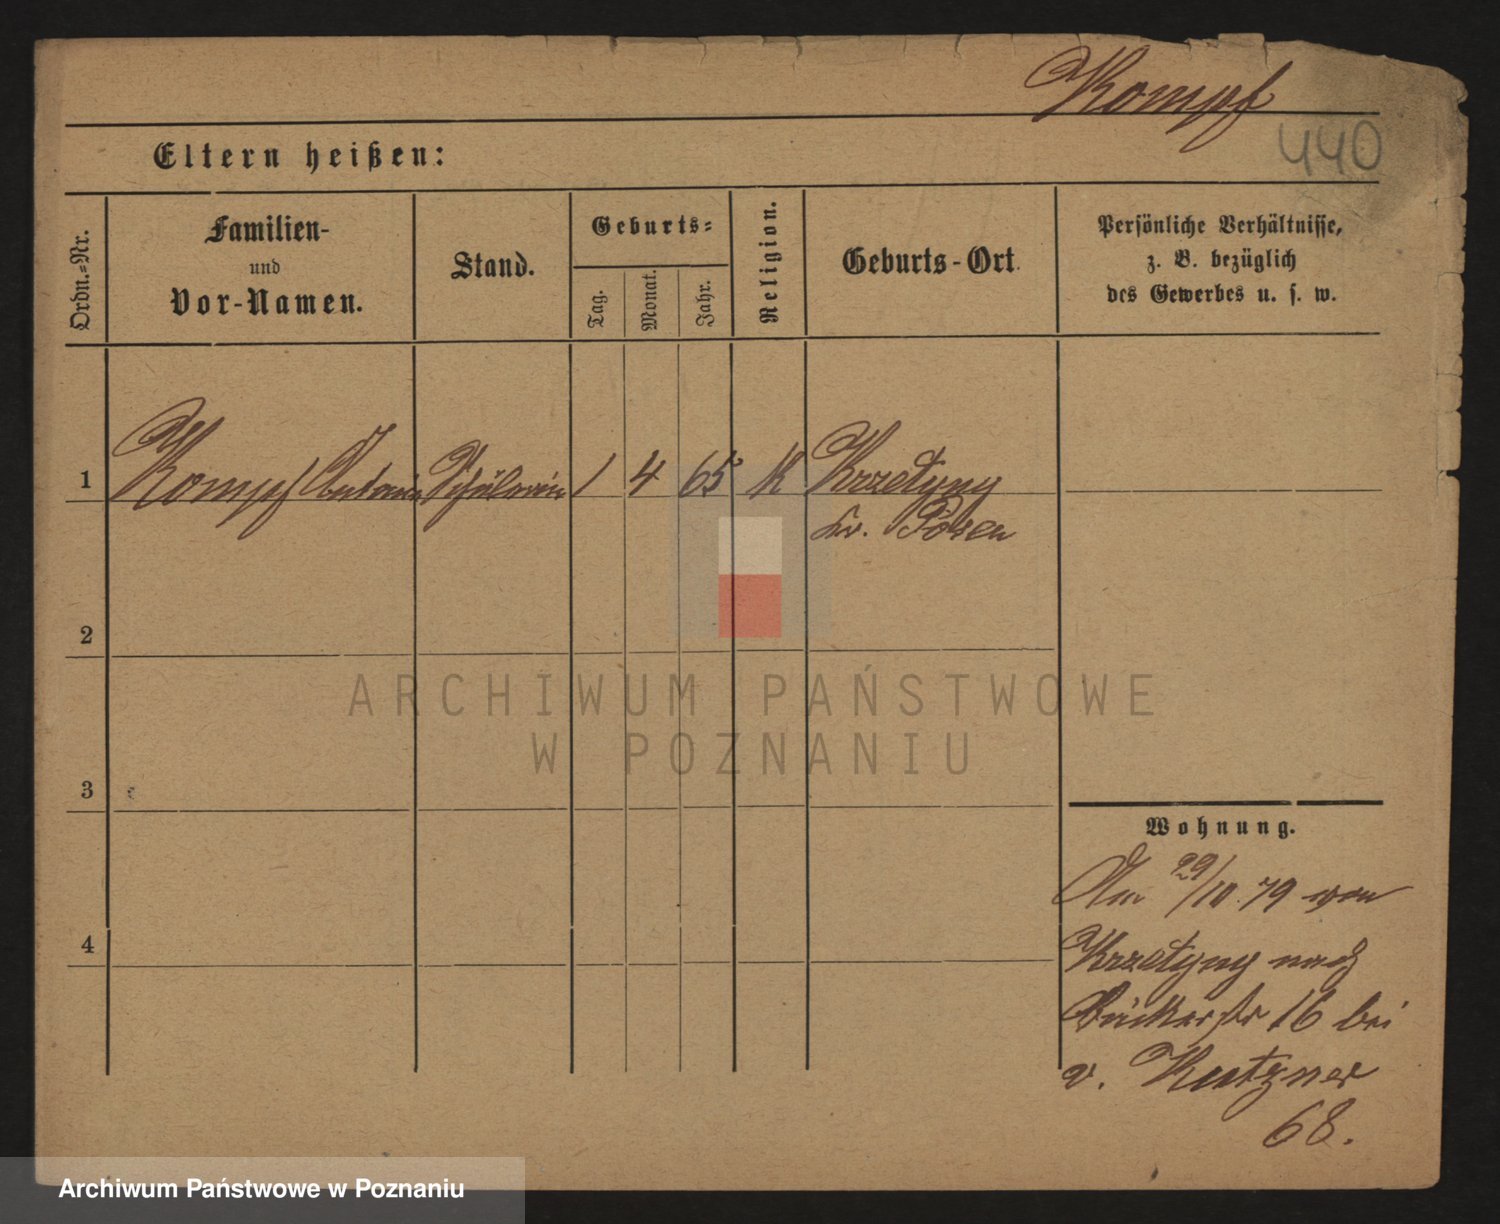 Kompf
440
Eltern heißen:
Ordn.=Nr.
Familien-
und
Vor-Namen.
Stand.
Geburts=
Tag.
Monat.
Jahr.
Religion.
Geburts-Ort.
Persönliche Verhältnisse,
z. B. bezüglich
des Gewerbes u. s. w.
1 Kompf Schülerin 1 4 65 K Krzetyny
Kr. Posen
2
3
4
Wohnung.
Am 29/10. 79 von
Krzetyny nach
Bäckerstr 16 bei
v. Kutzner
68.
ARCHIWUM PAŃSTWOWE
W POZNANIU
Archiwum Państwowe w Poznaniu